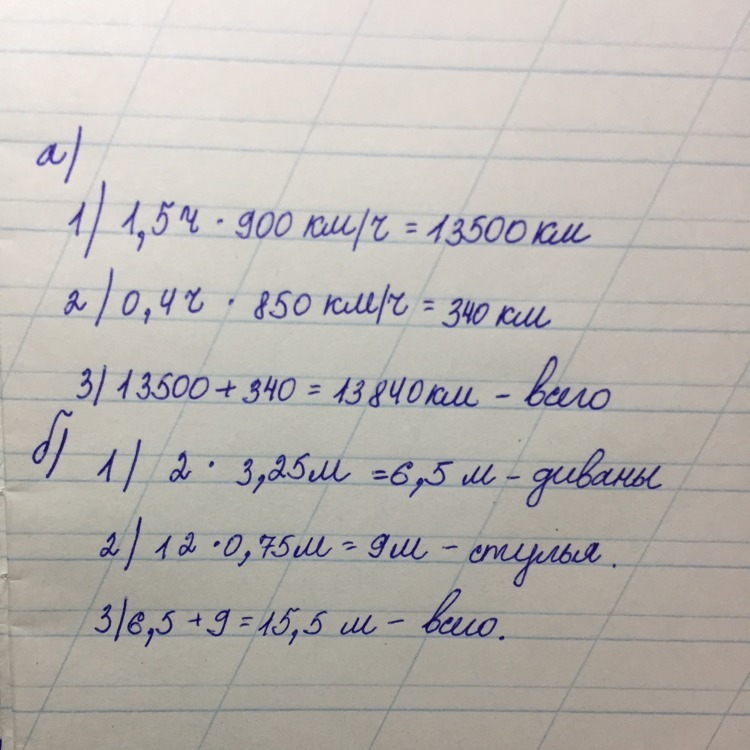 а)
1) 1,5ч · 900 км/ч = 13500 км
2) 0,4ч · 850 км/ч = 340 км
3) 13500 + 340 = 13840 км - всего
б)
1) 2 · 3,25м = 6,5 м - диваны
2) 12 · 0,75м = 9м - стулья.
3) 6,5 + 9 = 15,5 м - всего.